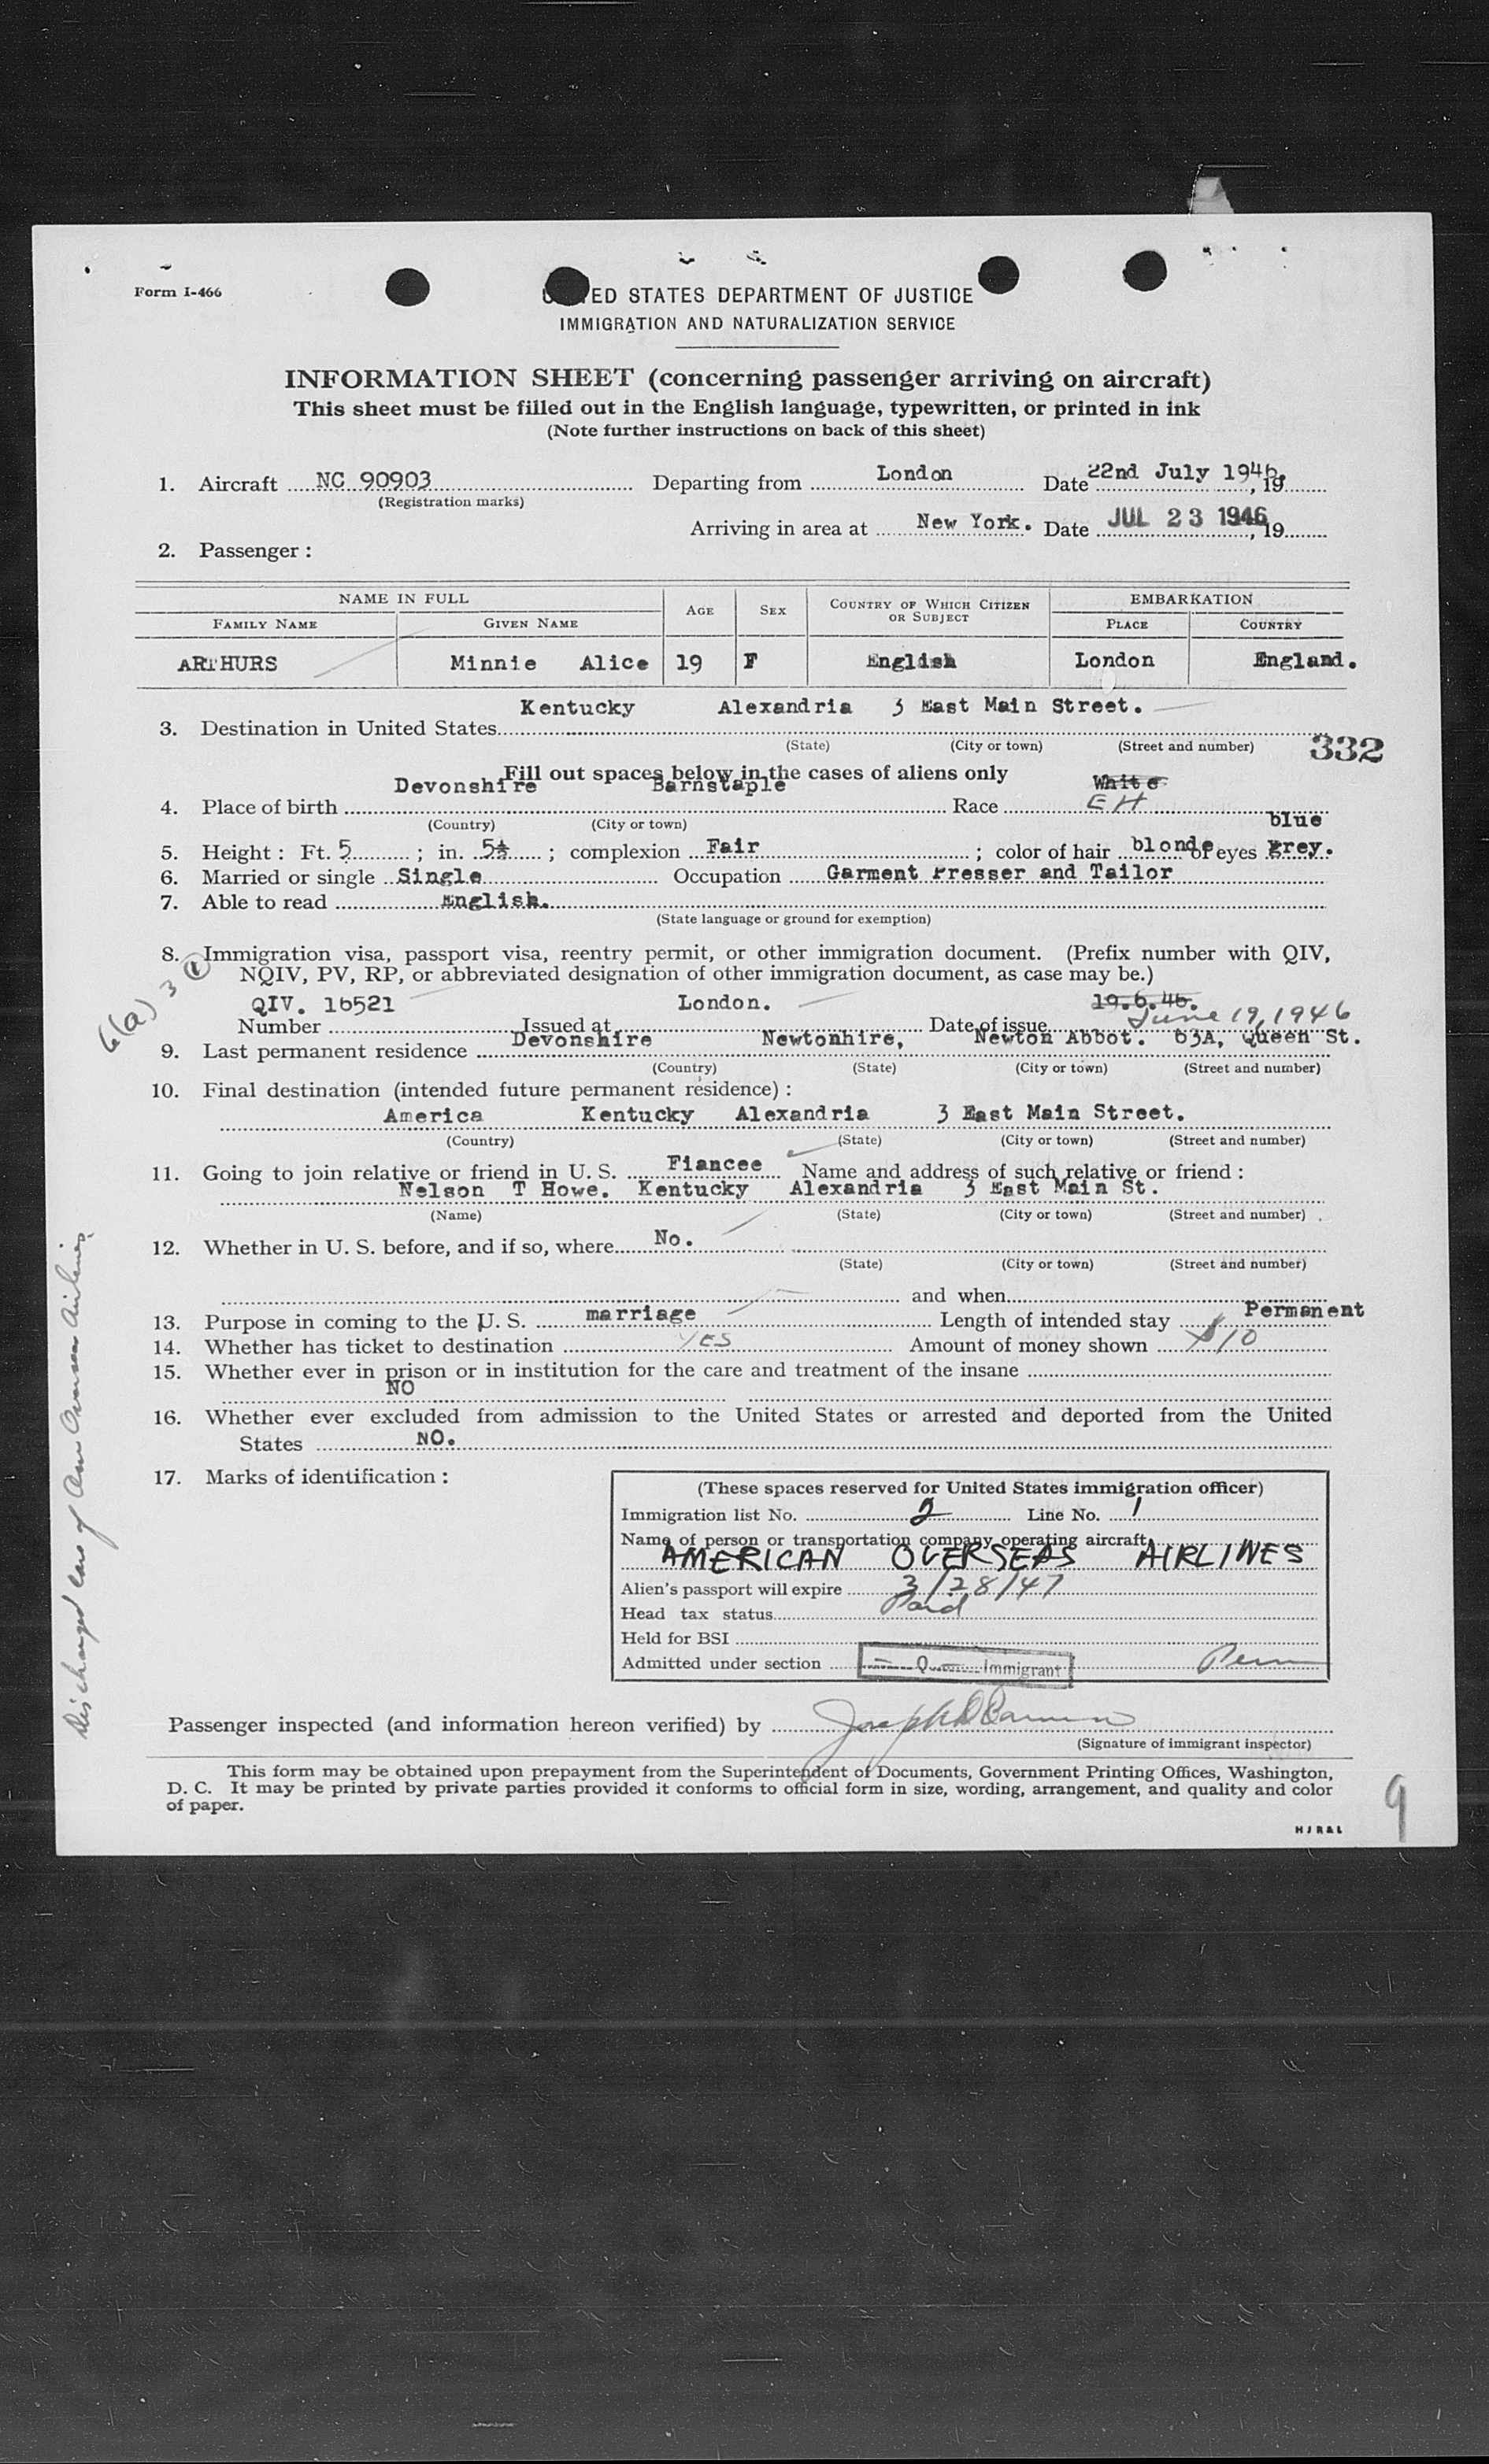 Form I-466
UNITED STATES DEPARTMENT OF JUSTICE
IMMIGRATION AND NATURALIZATION SERVICE
INFORMATION SHEET (concerning passenger arriving on aircraft)
This sheet must be filled out in the English language, typewritten, or printed in ink
(Note further instructions on back of this sheet)
1. Aircraft NC 90903 Departing from London Date 22nd July 1946, 19
(Registration marks)
Arriving in area at New York. Date JUL 23 1946, 19
2. Passenger :
NAME IN FULL AGE SEX COUNTRY OF WHICH CITIZEN OR SUBJECT EMBARKATION
FAMILY NAME GIVEN NAME PLACE COUNTRY
ARTHURS Minnie Alice 19 F English London England.
Kentucky Alexandria 3 East Main Street.
3. Destination in United States
(State) (City or town) (Street and number) 332
Fill out spaces below in the cases of aliens only
Devonshire Barnstaple White
4. Place of birth Race EH
(Country) (City or town) blue
5. Height : Ft. 5 ; in. 5½ ; complexion Fair ; color of hair blonde of eyes grey.
6. Married or single Single Occupation Garment Presser and Tailor
7. Able to read English.
(State language or ground for exemption)
8. Immigration visa, passport visa, reentry permit, or other immigration document. (Prefix number with QIV,
NQIV, PV, RP, or abbreviated designation of other immigration document, as case may be.)
6(a) 3 1
QIV. 16521 London. 19.6.46.
Number Issued at Date of issue June 19, 1946
9. Last permanent residence Devonshire Newtonhire, Newton Abbot. 63A, Queen St.
(Country) (State) (City or town) (Street and number)
10. Final destination (intended future permanent residence) :
America Kentucky Alexandria 3 East Main Street.
(Country) (State) (City or town) (Street and number)
11. Going to join relative or friend in U. S. Fiancee Name and address of such relative or friend :
Nelson T Howe. Kentucky Alexandria 3 East Main St.
(Name) (State) (City or town) (Street and number)
12. Whether in U. S. before, and if so, where No.
(State) (City or town) (Street and number)
and when
13. Purpose in coming to the U. S. marriage Length of intended stay Permanent
14. Whether has ticket to destination YES Amount of money shown $10
15. Whether ever in prison or in institution for the care and treatment of the insane
NO
16. Whether ever excluded from admission to the United States or arrested and deported from the United
States NO.
17. Marks of identification :
(These spaces reserved for United States immigration officer)
Immigration list No. 2 Line No. 1
Name of person or transportation company operating aircraft
AMERICAN OVERSEAS AIRLINES
Alien's passport will expire 3/28/47
Head tax status Paid
Held for BSI
Admitted under section Q Immigrant Perm
Discharged care of Am Overseas Airlines
Passenger inspected (and information hereon verified) by Joseph
(Signature of immigrant inspector)
This form may be obtained upon prepayment from the Superintendent of Documents, Government Printing Offices, Washington,
D. C. It may be printed by private parties provided it conforms to official form in size, wording, arrangement, and quality and color
of paper.
H J R & L
9